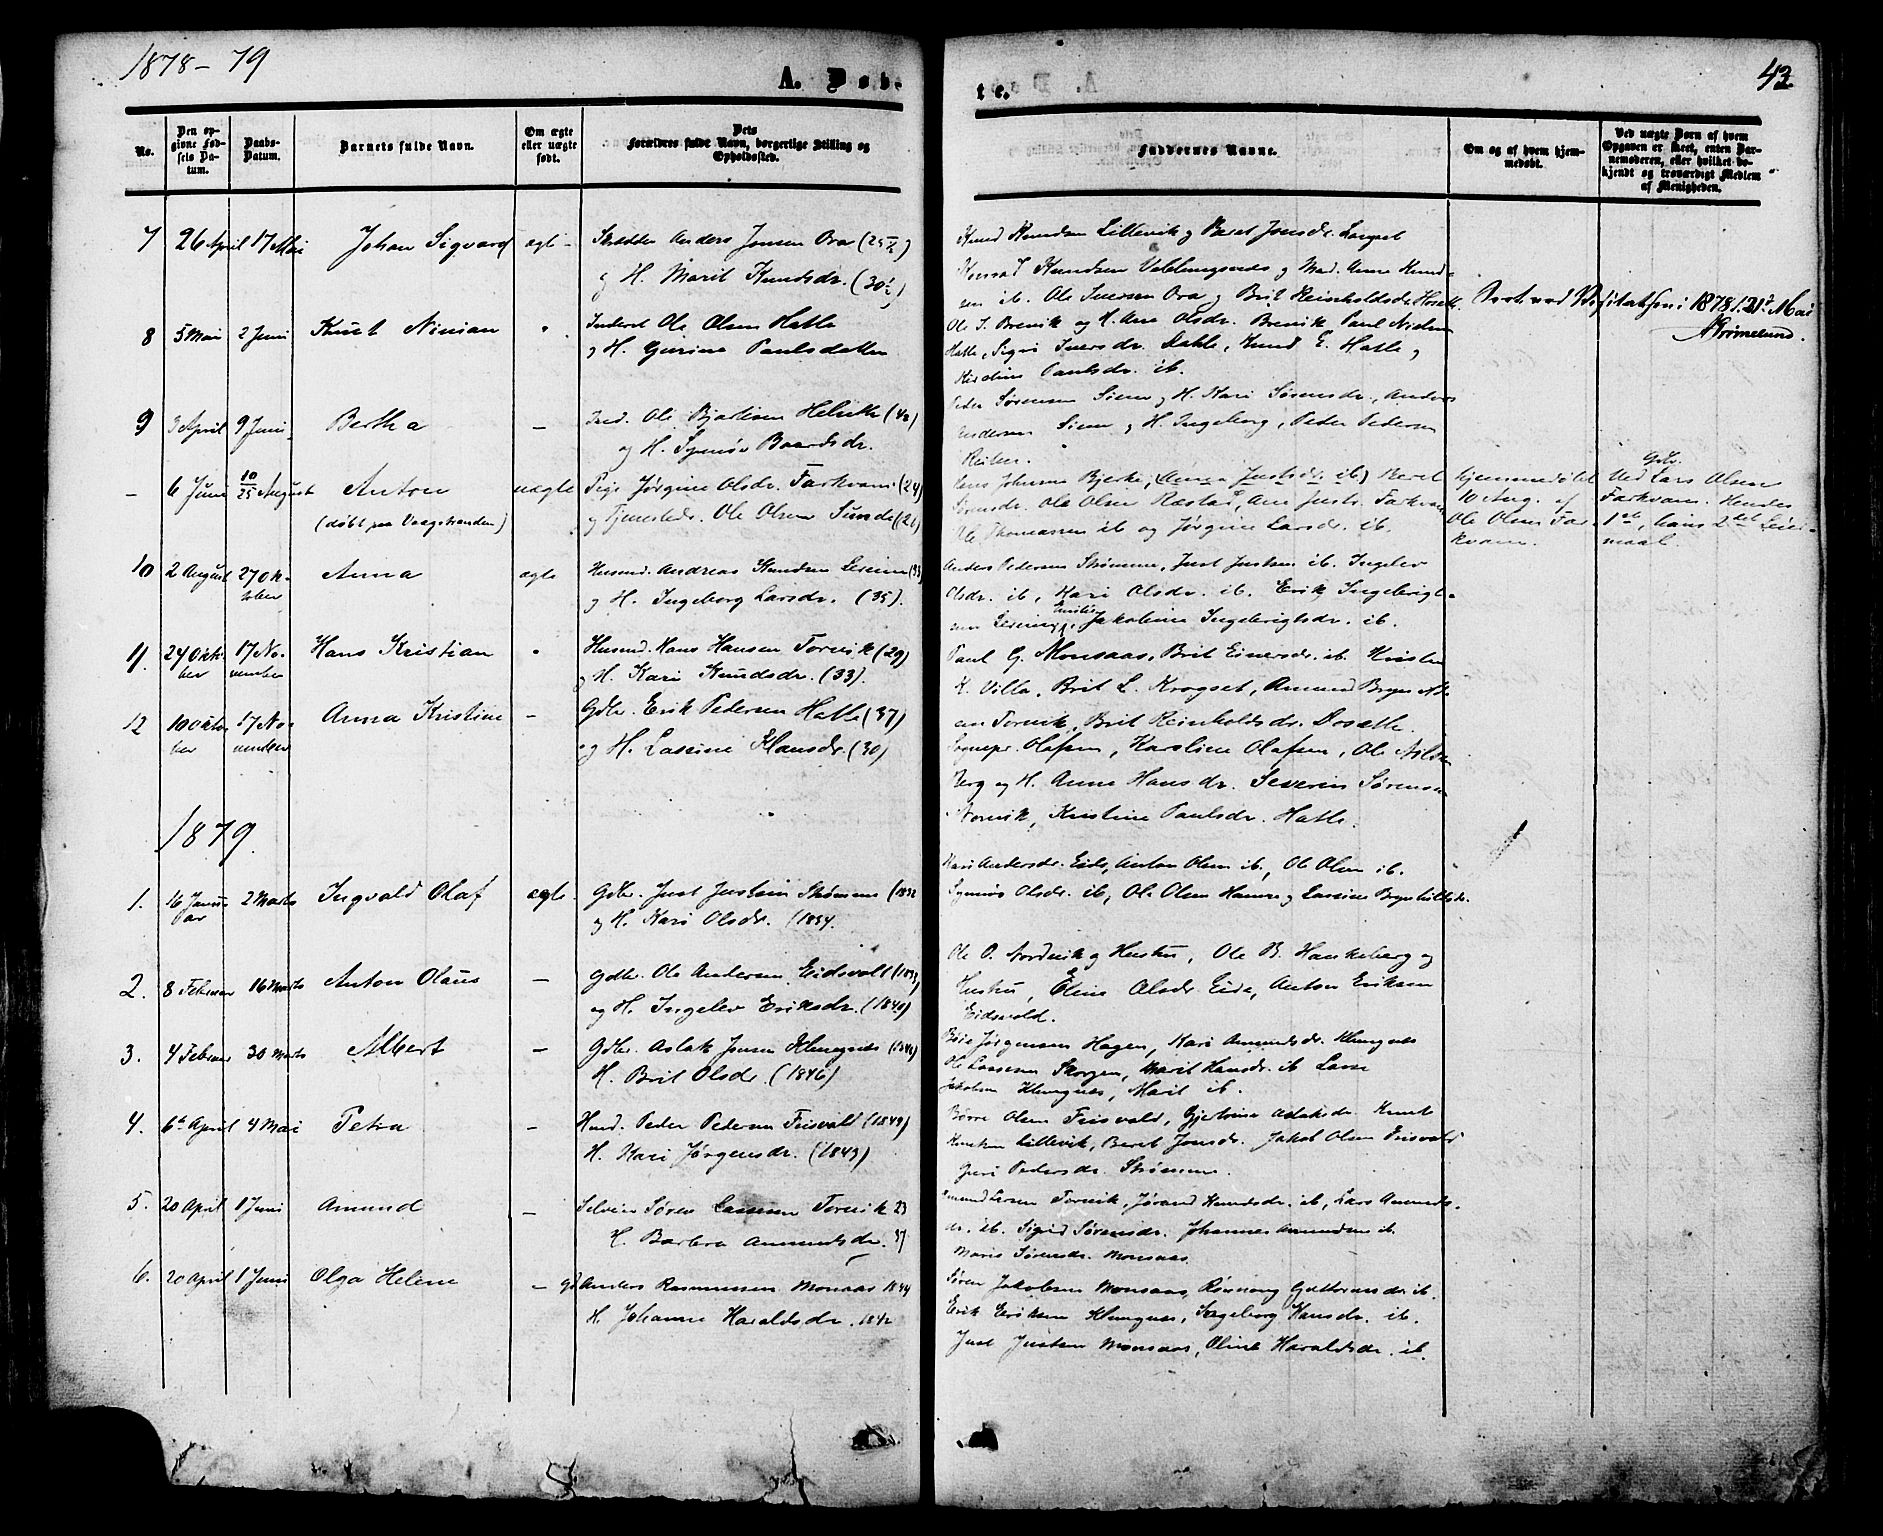 1878-79
A. Døb-
te.
43
No.
Den opgivne Fødsels Datum.
Daabs-Datum.
Barnets fulde Navn.
Om ægte eller uægte født.
Dets Forældres fulde Navn, borgerlige Stilling og Opholdssted.
Faddernes Navne.
Om og af hvem hjemmedøbt.
Ved uægte Børn af hvem Opgaven er skeet, enten Barnemoderen, eller hvilket bekjendt og troværdigt Medlem af Menigheden.
7 26 April 17 Mai Johan Sigvard ægte Anders Jonsen Ora (25 ½)
og H. Marit Knudsdr. (30 ½)
Knud Knudsen Lillevik og Beret Jonsdr. Langset
Knudsen Veblungsnes og Mad. Anne Knud-
sen ib. Ole Iversen Ora og Brit Reinholdsdr.
8 5 Mai 2 Juni Knut Ninian " Inderst Ole Olsen Hatle
og H. Gurine Paulsdatter
Ole I. Brevik og H. Ane Olsdr. Brevik Paul Nielsen
Hatle, Sigri Iversdr. Dahle, Knud E. Hatle og
Paulsdr. ib.
ved Visitatsen i 1878 21de Mai
9 3 April 9 Juni Bertha - Ind. Ole (42)
og H. Synnøv Baardsdr.
Peder Sørensen Siem og H. Kari Sørensdr., Anders
Andersen Siem og H. Ingeborg, Peder Pedersen
Reiten.
- 6 Juni 10/25 August Anton uægte Pige Jørgine Olsdr. Farkvam (24)
(døbt paa Vaagstranden) og Tjenestedr. Ole Olsen Sunde (21)
Johnsen Bjerke, (Anna Justsdr. ib) Beret
Sørensdr. Ole Olsen Ane Justs. Farkvam
Ole Thomassen ib og Jørgine Larsdr. ib.
hjemmedøbt
10 Aug. af
Ole Olsen Far-
kvam.
Gbr.
Ved Lars Olsen
Farkvam. Hendes
1ste, hans 2det Leier-
maal.
10 2 August 27 Ok-
tober Anna ægte Husmd. Andreas Knudsen (33)
og H. Ingeborg Larsdr. (35).
Anders Pedersen Strømme, Just Justsen ib. Ingelev
Olsdr. ib, Kari Olsdr. ib. Erik Ingebrigt-
sen Jakobine Ingebrigtsdr. ib.
11. 24 Okto-
ber 17 No-
vember Hans Kristian " Husmd. Hans Hansen Torvik (29)
og H. Kari Knudsdr. (33).
Paul G. Monsaas, Brit Einersdr. ib.
K. Villa, Brit L. Krogset, Amund
Torvik, Brit Reinholdsdr.
12 10 Okto-
ber 17 No-
vember Anna Kristine - Gbr. Erik Pedersen Hatle (37)
og H. Lassine Hansdr. (30)
Sognepr. Olafsen, Karoline Olafsen, Ole Nilsen
Berg og H. Anne Hansdr. Severin Sørensen
Norvik, Kristine Paulsdr. Hatle.
1879.
1. 16 Janu-
ar 2 Marts Ingvald Olaf ægte. Gbr. Just Justsen Strømme (1832
og H. Kari Olsdr. (1834.
Kari Andersdr. Eide, Anton Olsen ib., Ole Olsen ib.
Synnøv Olsdr. ib, Ole Olsen Hamre og Lassine Brynhildsdr.
2. 8 Februar 16 Marts Anton Olaus - Gdbr. Ole Andersen Eidsvold
og H. Ingelev Eriksdr. (1840)
Ole O. Nordvik og Hustru, Ole B. Haukeberg og
Hustru, Eline Olsdr. Eide, Anton Eriksen
Eidsvold.
3. 4 Februar 30 Marts Albert - Gdbr. Aslak Jonsen Klungnes
H. Brit Olsdr. (1846)
Jørgensen Hagen, Kari Amundsdr. Klungnes
Ole Lassesen Skorgen, Marit Hansdr. ib Lasse
Jakobsen Klungnes, Marit ib.
4. 6te April 4 Mai Petra - Husmd. Peder Pedersen Frisvold (1849)
H. Kari Jørgensdr. (1843)
Børre Olsen Frisvold, Gjertrine Aslaksdr. Knut
Knutsen Lillevik, Beret Jonsdr. Jakob Olsen Frisvold
Guri Pedersdr. Strømme.
5. 20 April 1 Juni Amund - Selveier Søren Lassesen Torvik 23
H. Barbra Amundsdr. 37
Amund Larsen Torvik, Jørand Knudsdr. ib, Lars Amunds-
ib. Sigrid Sørensdr. Johannes Amundsen ib.
Marit Sørensdr. Monsaas.
6. 20 April 1 Juni Olga Helene - Gd Anders Rasmussen Monsaas 1844
H. Johanne Haraldsdr. 1842
Søren Jakobsen Monsaas, Rønnaug Guttormsdr. ib.
Erik Eriksen Klungnes, Ingeborg Hansdr. ib.
Just Justsen Monsaas, Oline Haraldsdr. ib.